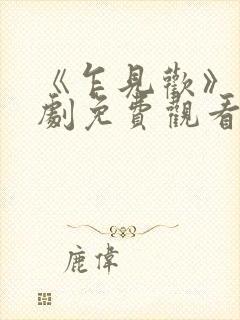 《乍見歡》
劇免費觀看
鹿偉